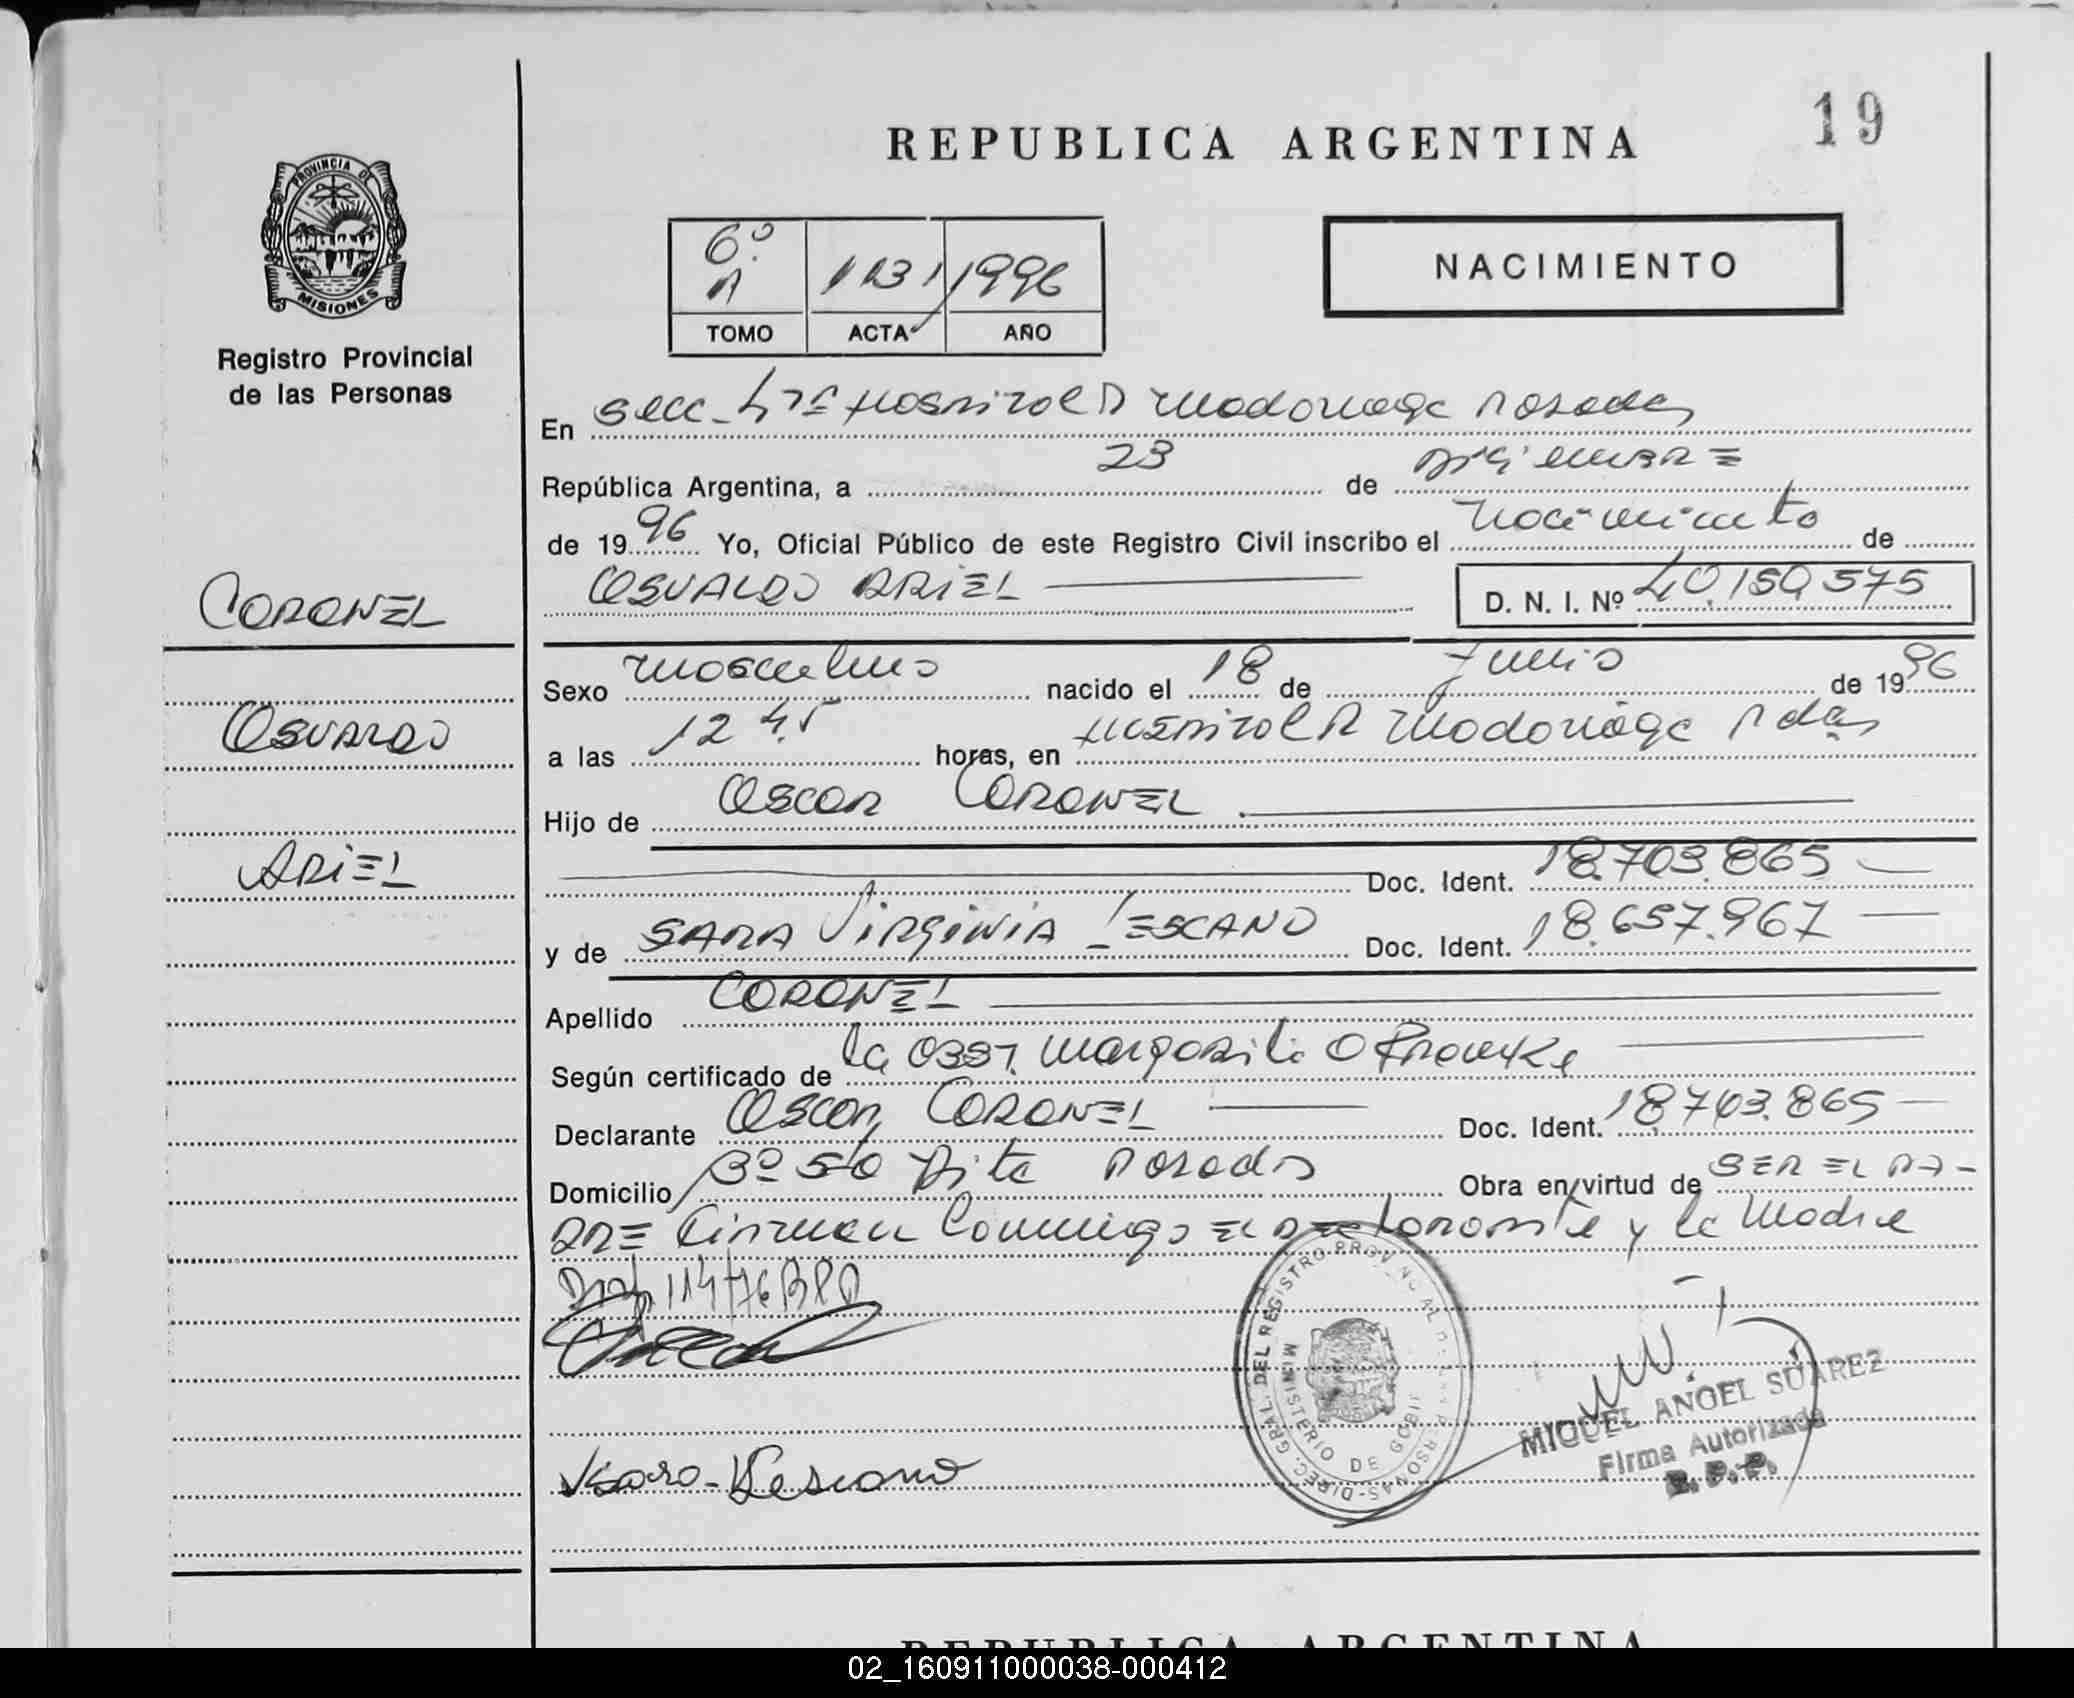 REPUBLICA ARGENTINA
19
PROVINCIA DE
MISIONES
Registro Provincial
de las Personas
6º A 1131 1996
TOMO ACTA AÑO
NACIMIENTO
En Secc. Hospital R Madariaga Posadas
República Argentina, a 23 de Diciembre
de 1996 Yo, Oficial Público de este Registro Civil inscribo el nacimiento de
OSVALDO ARIEL D. N. I. Nº 40.150.575
CORONEL
OSVALDO
ARIEL
Sexo masculino nacido el 18 de Junio de 1996
a las 12 45 horas, en Hospital R Madariaga Pdas
Hijo de Oscar CORONEL
Doc. Ident. 18.703.865
y de SARA VIRGINIA LESCANO Doc. Ident. 18.657.967
Apellido CORONEL
Según certificado de la Obst. Margarita O
Declarante Oscar CORONEL Doc. Ident. 18.743.865
Domicilio Bº 50 Posadas Obra en virtud de SER EL PA-
DRE Firman Conmigo EL Declarante y la Madre
114/76
Sara Lescano
DIREC. GRAL. DEL REGISTRO PROVINCIAL DE LAS PERSONAS
MINISTERIO DE GOBIERNO
MIGUEL ANGEL SUAREZ
Firma Autorizada
R.P.P.
REPUBLICA ARGENTINA
02_160911000038-000412